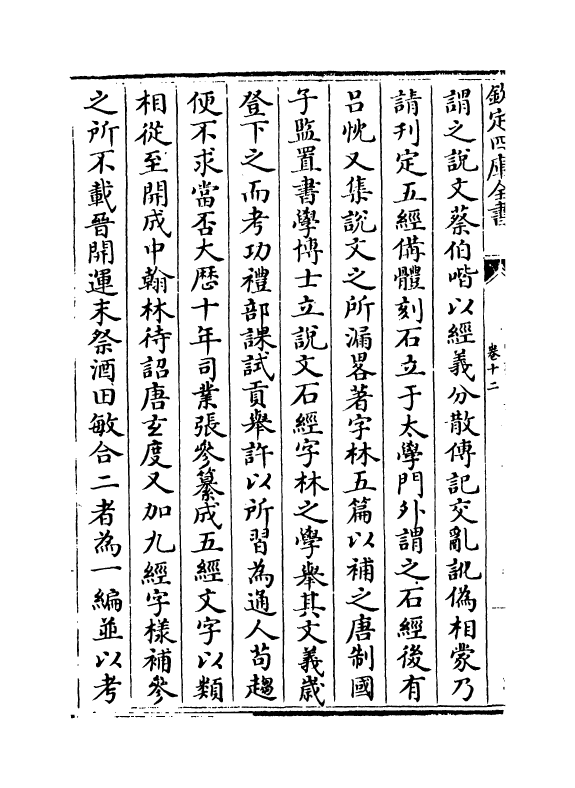 欽定四庫全書
卷十二
謂之說文蔡伯喈以經義分散傳記交亂訛偽相蒙乃
請刊定五經備體刻石立于太學門外謂之石經後有
呂忱又集說文之所漏畧著字林五篇以補之唐制國
子監置書學博士立說文石經字林之學舉其文義歲
登下之而考功禮部課試貢舉許以所習為通人苟趨
便不求當否大歴十年司業張參纂成五經文字以類
相從至開成中翰林待詔唐玄度又加九經字樣補參
之所不載晉開運末祭酒田敏合二者為一編並以考